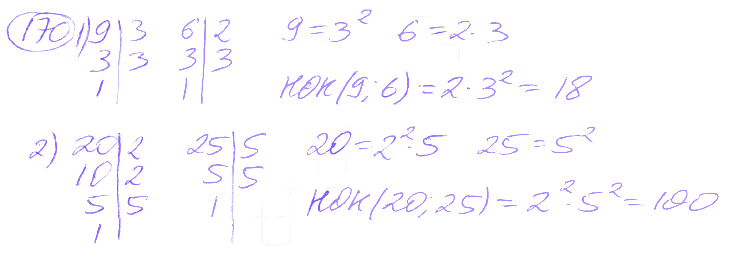 170 1) 9 | 3 6 | 2 9 = 3² 6 = 2·3
3 | 3 3 | 3
1 | 1 | НОК(9; 6) = 2·3² = 18
2) 20 | 2 25 | 5 20 = 2²·5 25 = 5²
10 | 2 5 | 5
5 | 5 1 | НОК(20; 25) = 2²·5² = 100
1 |